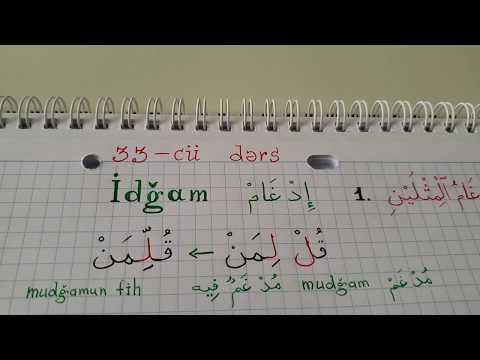 33-cü dərs
İdğam إِدْغَامْ 1. غَامُ الْمِثْلَيْنِ
قُلْ لِمَنْ ← قُلِّمَنْ
mudğamun fih مُدْغَمٌ فِيه mudğam مُدْغَمْ